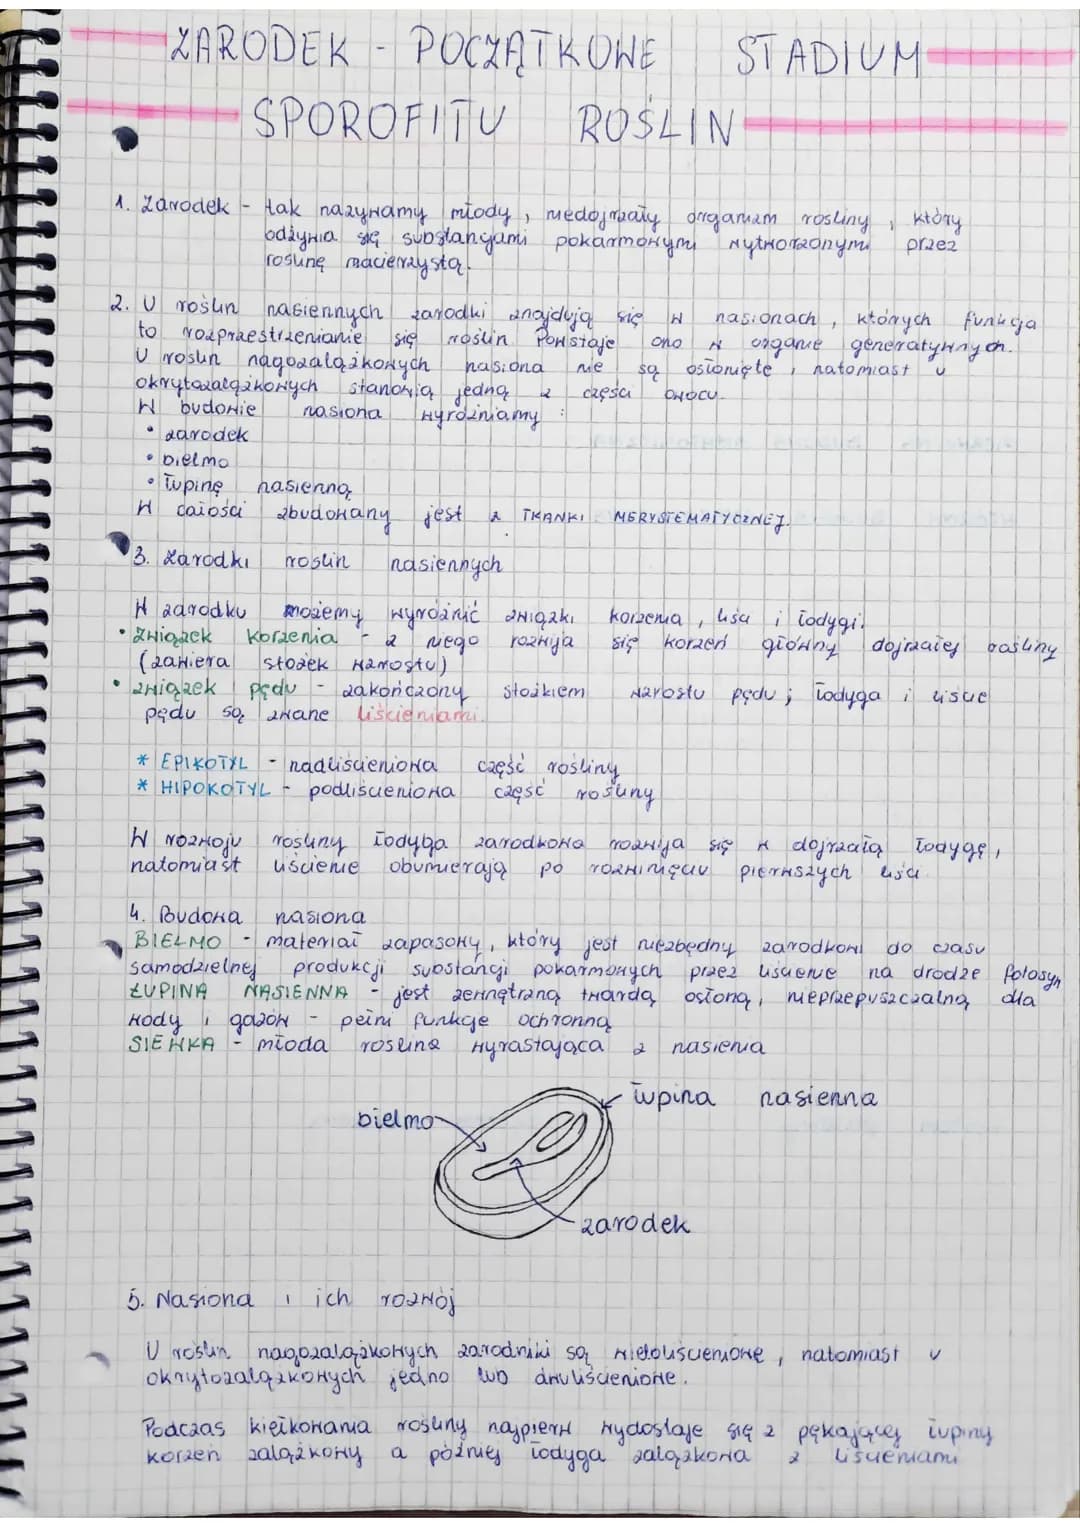 ZARODEK - POCZĄTKOWE STADIUM
SPOROFITU ROŚLIN
1. Zarodek - tak nazywamy młody, niedojrzały organizm rośliny, który
odżywia się substancjami pokarmowymi wytworzonymi przez
roślinę macierzystą.
2. U roślin nasiennych zarodki znajdują się w nasionach, których funkcja
to rozprzestrzenianie się roślin. Powstaje ono w organie generatywnych.
U roślin nagozalążkowych nasiona nie są osłonięte, natomiast u
okrytozalążkowych stanowią jedną z części owocu.
W budowie nasiona wyróżniamy:
• zarodek
• bielmo
• łupinę nasienną
W całości zbudowany jest z TKANKI MERYSTEMATYCZNEJ.
3. Zarodki roślin nasiennych
W zarodku możemy wyróżnić związki korzenia, liścia i łodygi.
• związek korzenia - z niego rozwija się korzeń główny dojrzałej rośliny
(zawiera stożek wzrostu)
• związek pędu - zakończony stożkiem wzrostu pędu; łodyga i liście
pędu są zwane liścieniami.
* EPIKOTYL - nadliścieniowa część rośliny
* HIPOKOTYL - podliścieniowa część rośliny
W rozwoju rośliny łodyga zarodkowa rozwija się w dojrzałą łodygę,
natomiast liścienie obumierają po rozwinięciu pierwszych liści.
4. Budowa nasiona
BIELMO - materiał zapasowy, który jest niezbędny zarodkowi do czasu
samodzielnej produkcji substancji pokarmowych przez liścienie na drodze fotosyn
ŁUPINA NASIENNA - jest zewnętrzną twardą osłoną, nieprzepuszczalną dla
wody i gazów - pełni funkcje ochronną
SIEWKA - młoda roślina wyrastająca z nasienia
łupina nasienna
bielmo
zarodek
5. Nasiona i ich rozwój
U roślin nagozalążkowych zarodniki są wieloliścieniowe, natomiast u
okrytozalążkowych jedno lub dwuliścieniowe.
Podczas kiełkowania rośliny najpierw wydostaje się z pękającej łupiny
korzeń zalążkowy a później łodyga zalążkowa z liścieniami